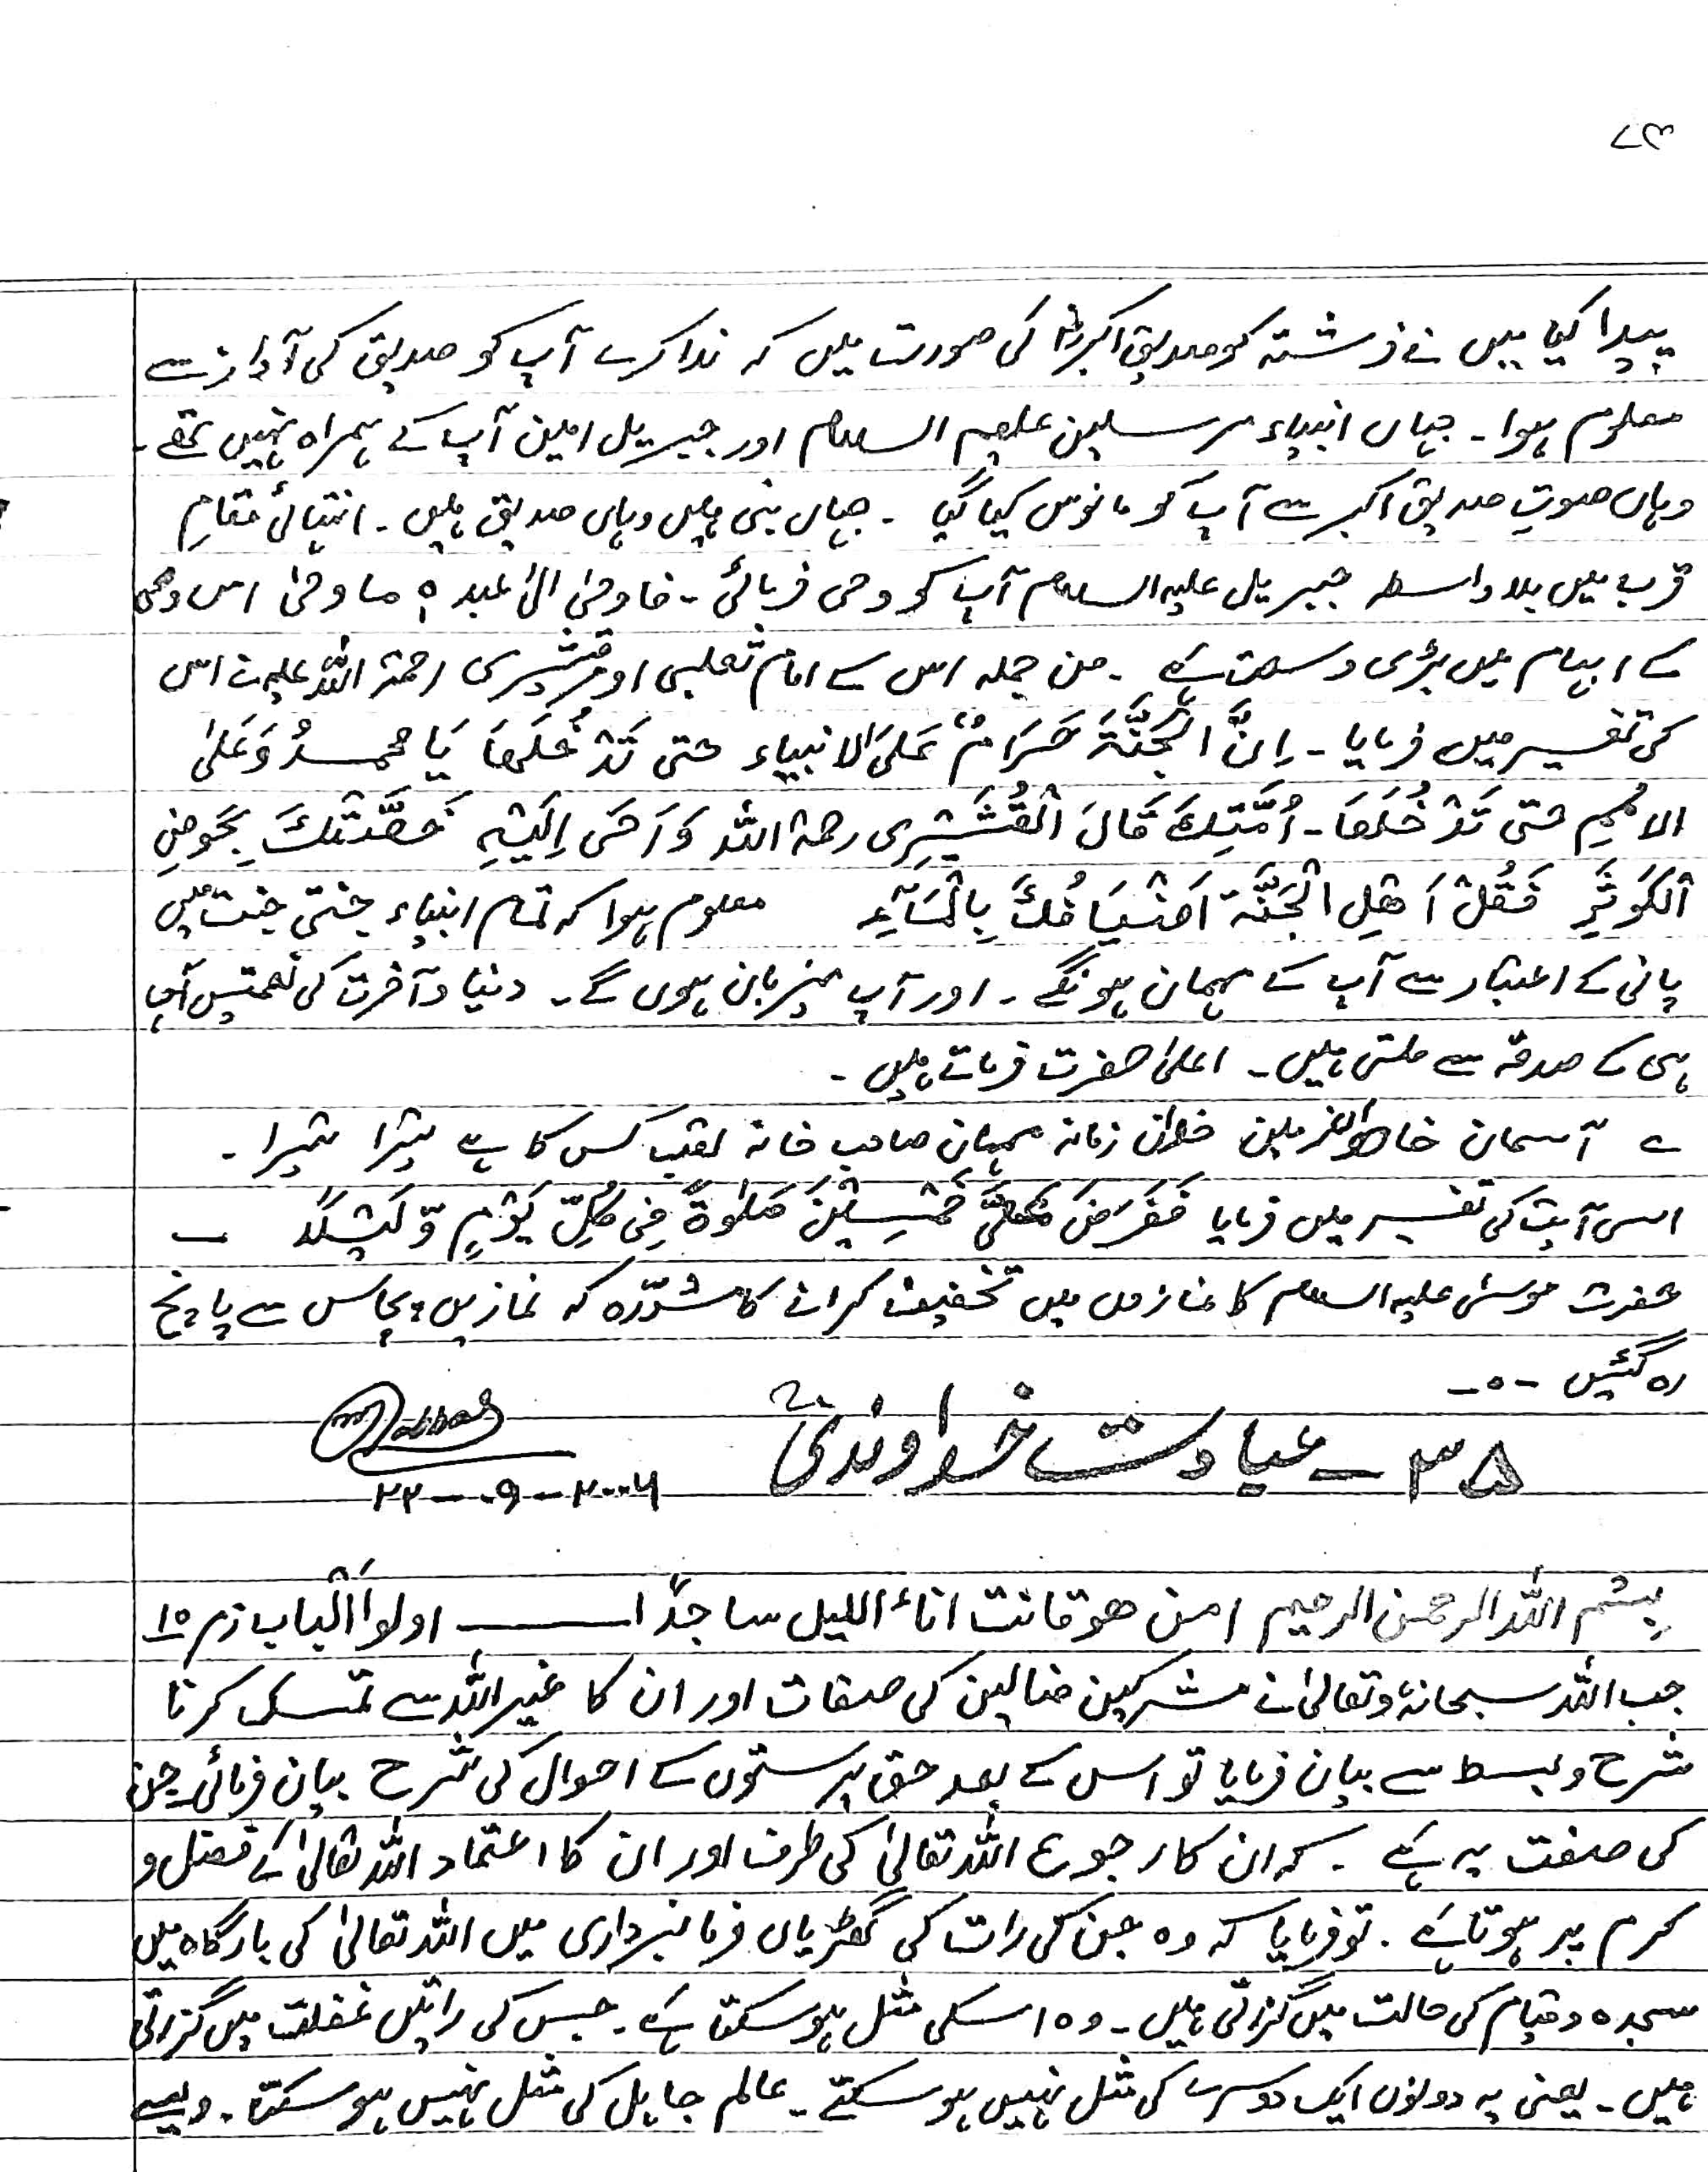 ۷۳
پیدا کیا میں نے فرشتہ کو صدیق اکبرؓ کی صورت میں کہ ندا کرے آپ کو صدیق کی آواز سے
معلوم ہوا۔ جہاں انبیاء مرسلین علیھم السلام اور جبریل امین آپ کے ہمراہ نہیں تھے۔
وہاں صوتِ صدیق اکبر سے آپ کو مانوس کیا گیا ۔ جہاں نبی ہیں وہاں صدیق ہیں ۔ انتہائی مقامِ
قرب میں بلا واسطہ جبریل علیہ السلام آپ کو وحی فرمائی ۔ فاوحیٰ الیٰ عبدہٖ ما وحیٰ اس وحی
کے ابہام میں بڑی وسعت ہے ۔ من جملہ اس کے امام ثعلبی اور قشیری رحمۃ اللہ علیہ نے اس
کی تفسیر میں فرمایا ۔ اِنَّ الْجَنَّۃَ حَرَامٌ عَلَی الانبیاء حتی تَدْخُلَھَا یَا محمدُ وَعَلیٰ
الاُمَمِ حتی تَدْخُلَھَا ۔ اُمَّتُکَ قَالَ الْقُشَیْرِی رحمۃ اللہ وَاَوحَی اِلَیْہِ خَصَّصْتُکَ بِحَوضِ
الْکَوثَرِ فَقُلْ اَھْلِ الْجَنَّۃ اَضْیَافُکَ بِالْمَآءِ معلوم ہوا کہ تمام انبیاء جنتی جنت میں
پانی کے اعتبار سے آپ کے مہمان ہونگے ۔ اور آپ میزبان ہوں گے ۔ دنیا و آخرت کی نعمتیں آپ
ہی کے صدقہ سے ملتی ہیں ۔ اعلیٰ حضرت فرماتے ہیں ۔
؎ آسمان خوان زمین خوان زمانہ مہمان صاحب خانہ لقب کس کا ہے تیرا تیرا ۔
اس آیت کی تفسیر میں فرمایا فَفَرَضَ عَلَیَّ خَمْسِیْنَ صَلٰوۃً فِی کُلِّ یَوْمٍ وَّ لَیْلَۃٍ ۔
حضرت موسیٰ علیہ السلام کا نمازوں میں تخفیف کرانے کا مشورہ کہ نمازیں پچاس سے پانچ
رہ گئیں ۔ ۰ ۔
۳۵ ۔ عبادت خداوندی
۲۲ - ۰۹ - ۲۰۰۶
بِسْمِ اللہ الرحمن الرحیم امن ھو قانت اناء اللیل ساجدًا ـــــ اولوا الالباب زمر ۱۵
جب اللہ سبحانہٗ وتعالیٰ نے مشرکین ضالین کی صفات اور ان کا غیر اللہ سے تمسک کرنا
شرح و بسط سے بیان فرمایا تو اس کے بعد حق پرستوں کے احوال کی شرح بیان فرمائی۔ جن
کی صفت یہ ہے ۔ کہ ان کا رجوع اللہ تعالیٰ کی طرف اور ان کا اعتماد اللہ تعالیٰ کے فضل و
کرم پر ہوتا ہے ۔ تو فرمایا کہ وہ جن کی رات کی گھڑیاں فرمانبرداری میں اللہ تعالیٰ کی بارگاہ میں
سجدہ و قیام کی حالت میں گزرتی ہیں ۔ وہ اسکی مثل ہو سکتا ہے ۔ جس کی راتیں غفلت میں گزرتی
ہیں ۔ یعنی یہ دونوں ایک دوسرے کی مثل نہیں ہو سکتے ۔ عالم جاہل کی مثل نہیں ہو سکتا ۔ ویسے